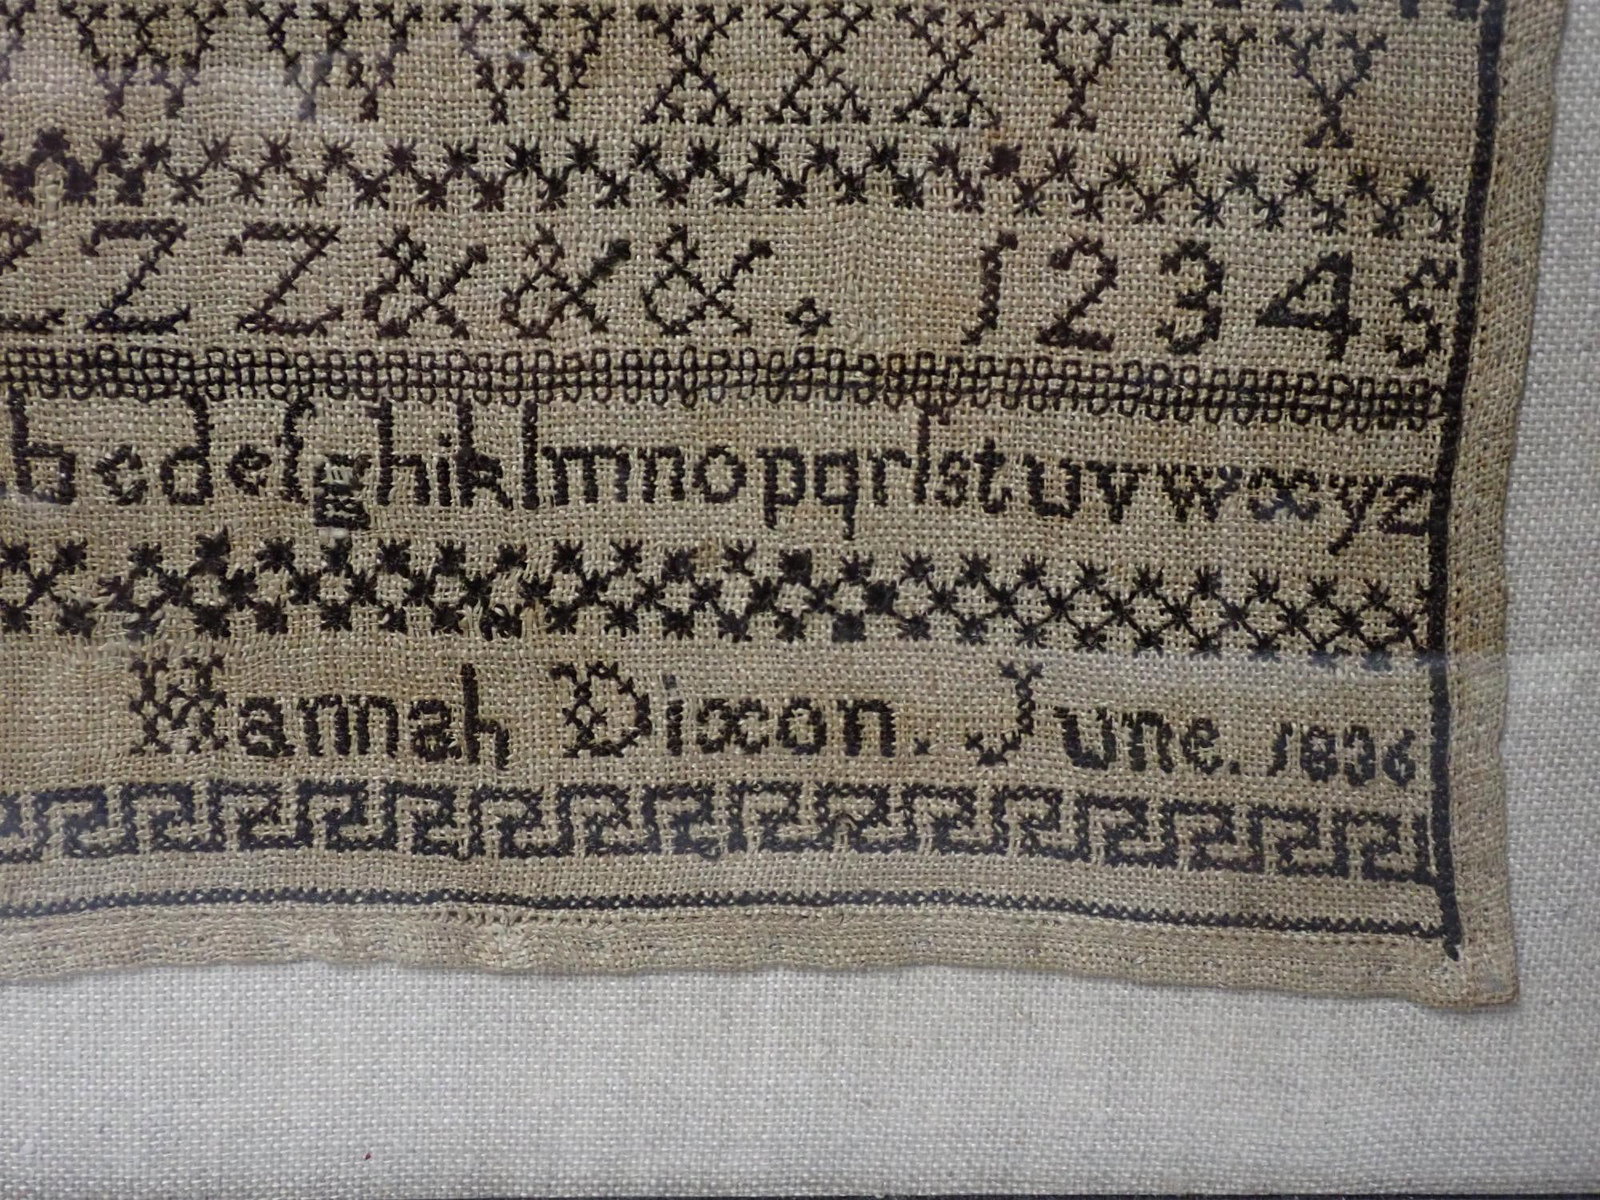 W W W X X X Y Y Y
Z Z Z & & &. 1 2 3 4 5
b c d e f g h i k l m n o p q r ſ s t u v w x y z
Hannah Dixon. June. 1836